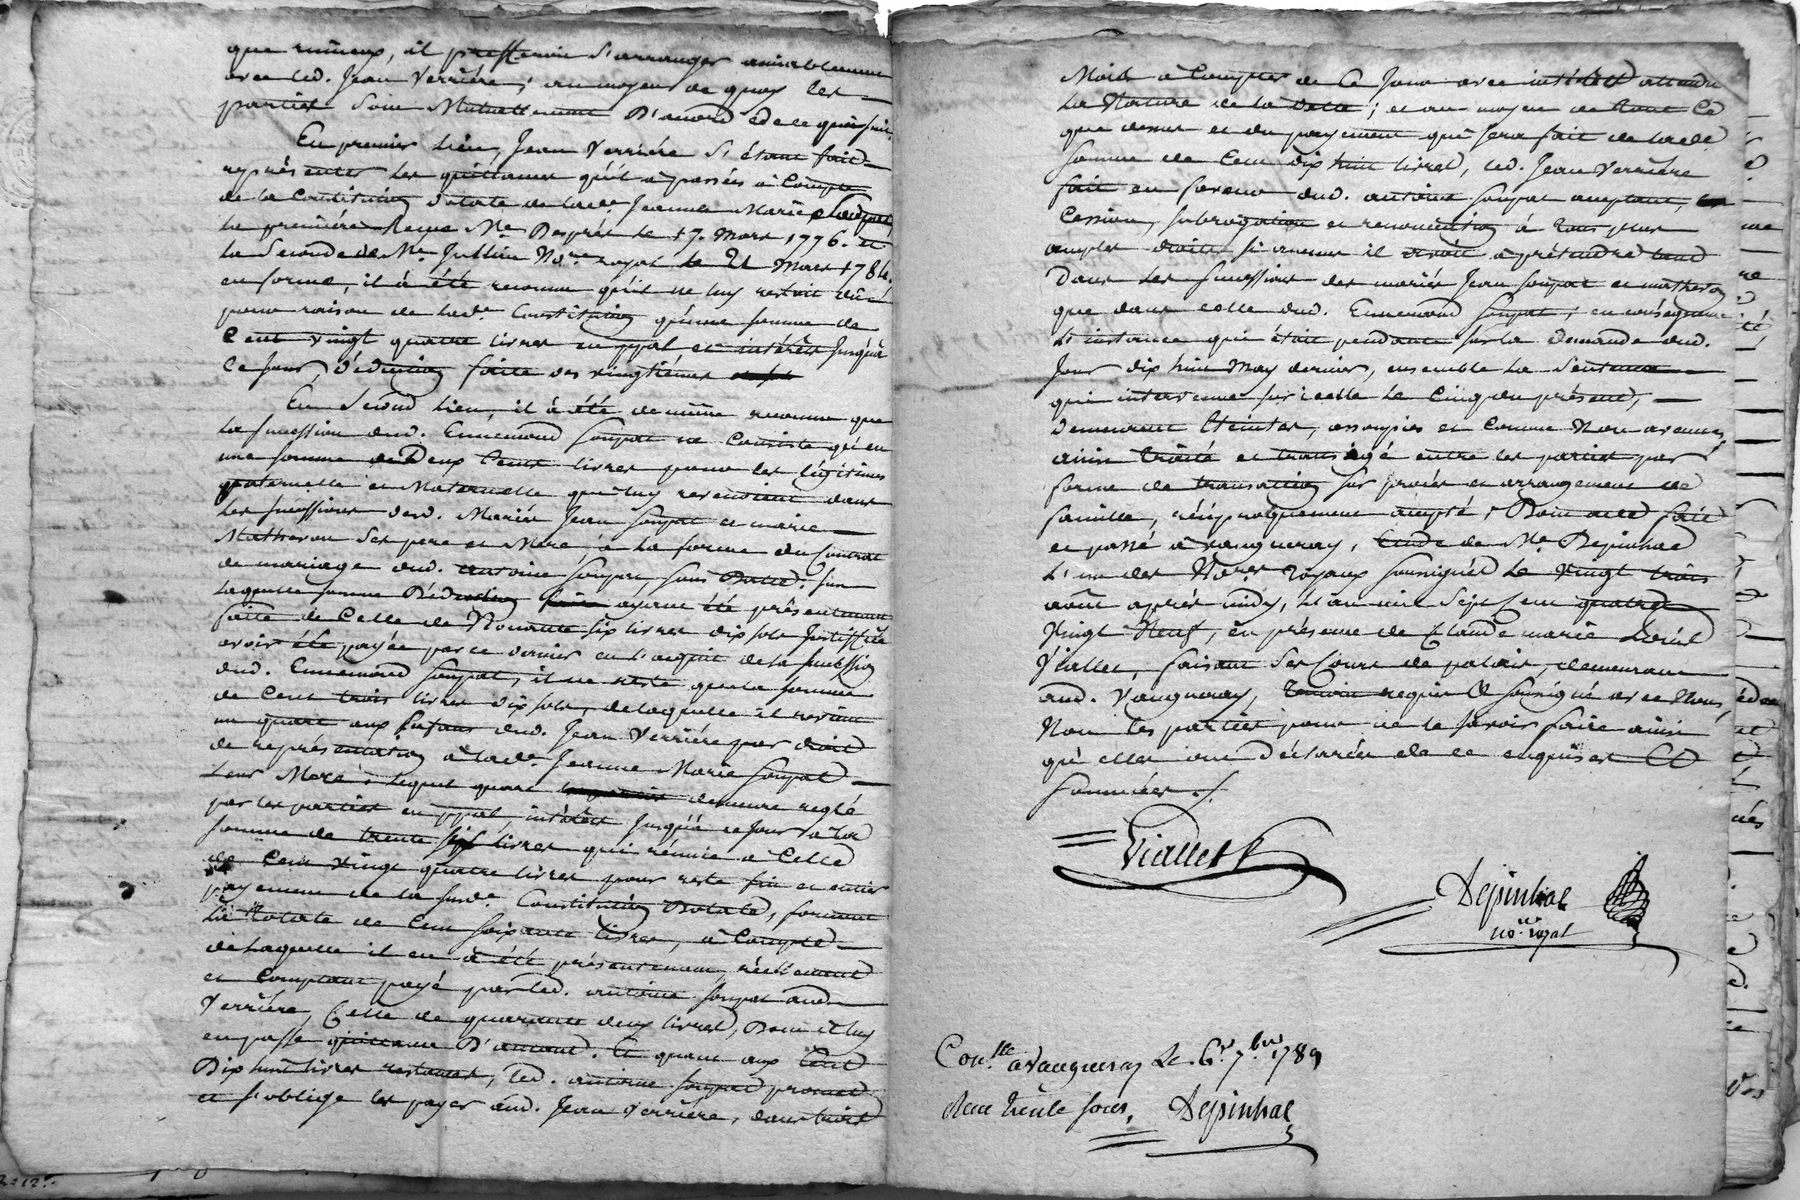 que ruineux, il préfferoit S'arranger amiablement
avec led. Jean Verrière; au moyen de quoy les
parties Sont Mutuellement D'accord de ce qui suit.
En premier Lieu, Jean Verrière S'étant fait
représenter les quittances qu'il a passées à Compte
de la Constitution dotale de lade. Jeanne Marie Soupat,
La première Reçue Me. Desprès le 17. Mars 1776. et
la Seconde de Me. Jullien Nore. royal le 21 Mars 1784.
en forme, il à été reconnu qu'il ne luy restoit dû
pour raison de lade. Constitution qu'une somme de
Cent vingt quatre livres en ppal et intérêts Jusqu'à
Ce Jour, Déduction faite des vingtièmes
En Second Lieu, il à été de même reconnu que
La Succession dud. Ennemond Soupat ne Consiste qu'en
une somme de Deux Cent livres pour les légitimes
paternelle et Maternelle que luy revenoient dans
Les Successions desd. Mariés Jean Soupat et marie
Matheron Ses pere et Mere, à la forme du Contrat
de mariage dud. Antoine Soupat, Sous Datte; Sur
Laquelle somme Déduction ayant été présentement
faitte de Celle de Nonante Six livres dix sols Justiffiée
avoir été payée par ce dernier en l'acquit de la Succession
dud. Ennemond Soupat, il ne reste que la somme
de Cent trois livres dix sols, de laquelle il revient
un quart aux Enfans dud. Jean Verrière par droit
de représentation de lade. Jeanne Marie Soupat
Leur Mere; lequel quart demeure reglé
par les parties en ppal, intérêts Jusqu'à ce Jour à la
somme de trente six livres qui réunie à Celle
de Cent vingt quatre livres pour reste fin et entier
payement de la susde. Constitution Dotale, forment
La Totale de Cent soixante livres, à Compte
de Laquelle il en à été présentement, réellement
et Comptant payé par led. antoine Soupat aud.
Verrière, Celle de quarante deux livres, Dont il luy
en passe quittance D'autant. Et quant aux Cent
Dix huit livres restantes, led. antoine Soupat promet
et S'oblige les payer aud. Jean Verrière, dans trois
Mois à Compter de Ce Jour avec intérêts attendu
La Nature de la Dette; et au moyen de tout Ce
que dessus et du payement qui sera fait de lade
somme de Cent dix huit livres, led. Jean Verrière
fait en faveur dud. antoine Soupat acceptant,
Cession, subrogation et renonciation à tous plus
amples droits si aucuns il avoit à prétendre tant
Dans les Successions des mariés Jean Soupat et matheron
que dans celle dud. Ennemond Soupat; en conséquence
L'instance qui étoit pendante sur la Demande dud.
Jour dix huit May dernier, ensemble la Sentence
qui intervenue sur icelle le Cinq du présent,
Demeurent Eteintes, assoupies et Comme Non avenues,
ainsi traité et transigé entre les parties par
forme de transaction sur procès et arrangement de
famille, réciproquement accepté, Dont acte fait
et passé à vaugneray, Etude de Me. Depinhac
L'un des Nores. Royaux soussignés Le vingt trois
août après midy, L'an mil Sept Cent quatre
Vingt Neuf, en présence de Claude marie
Viallet, faisant Ses Cours de palais, demeurant
aud. Vaugneray, temoin requis & soussigné avec Nous,
Non les parties pour ne le savoir faire ainsi
qu'elles ont déclarées de ce enquises et
Sommées ./.
Viallet
Depinhac
no. royal
Con.lle a vaugneray Le 6e 7bre 1789
Reçu trente sous, Depinhac